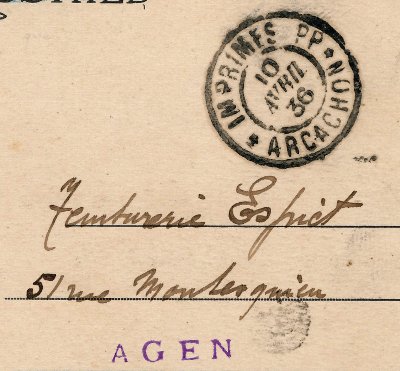 IMPRIMÉS PP * ARCACHON *
10
AVRIL
36
Teinturerie Espiet
51 rue Montesquieu
AGEN